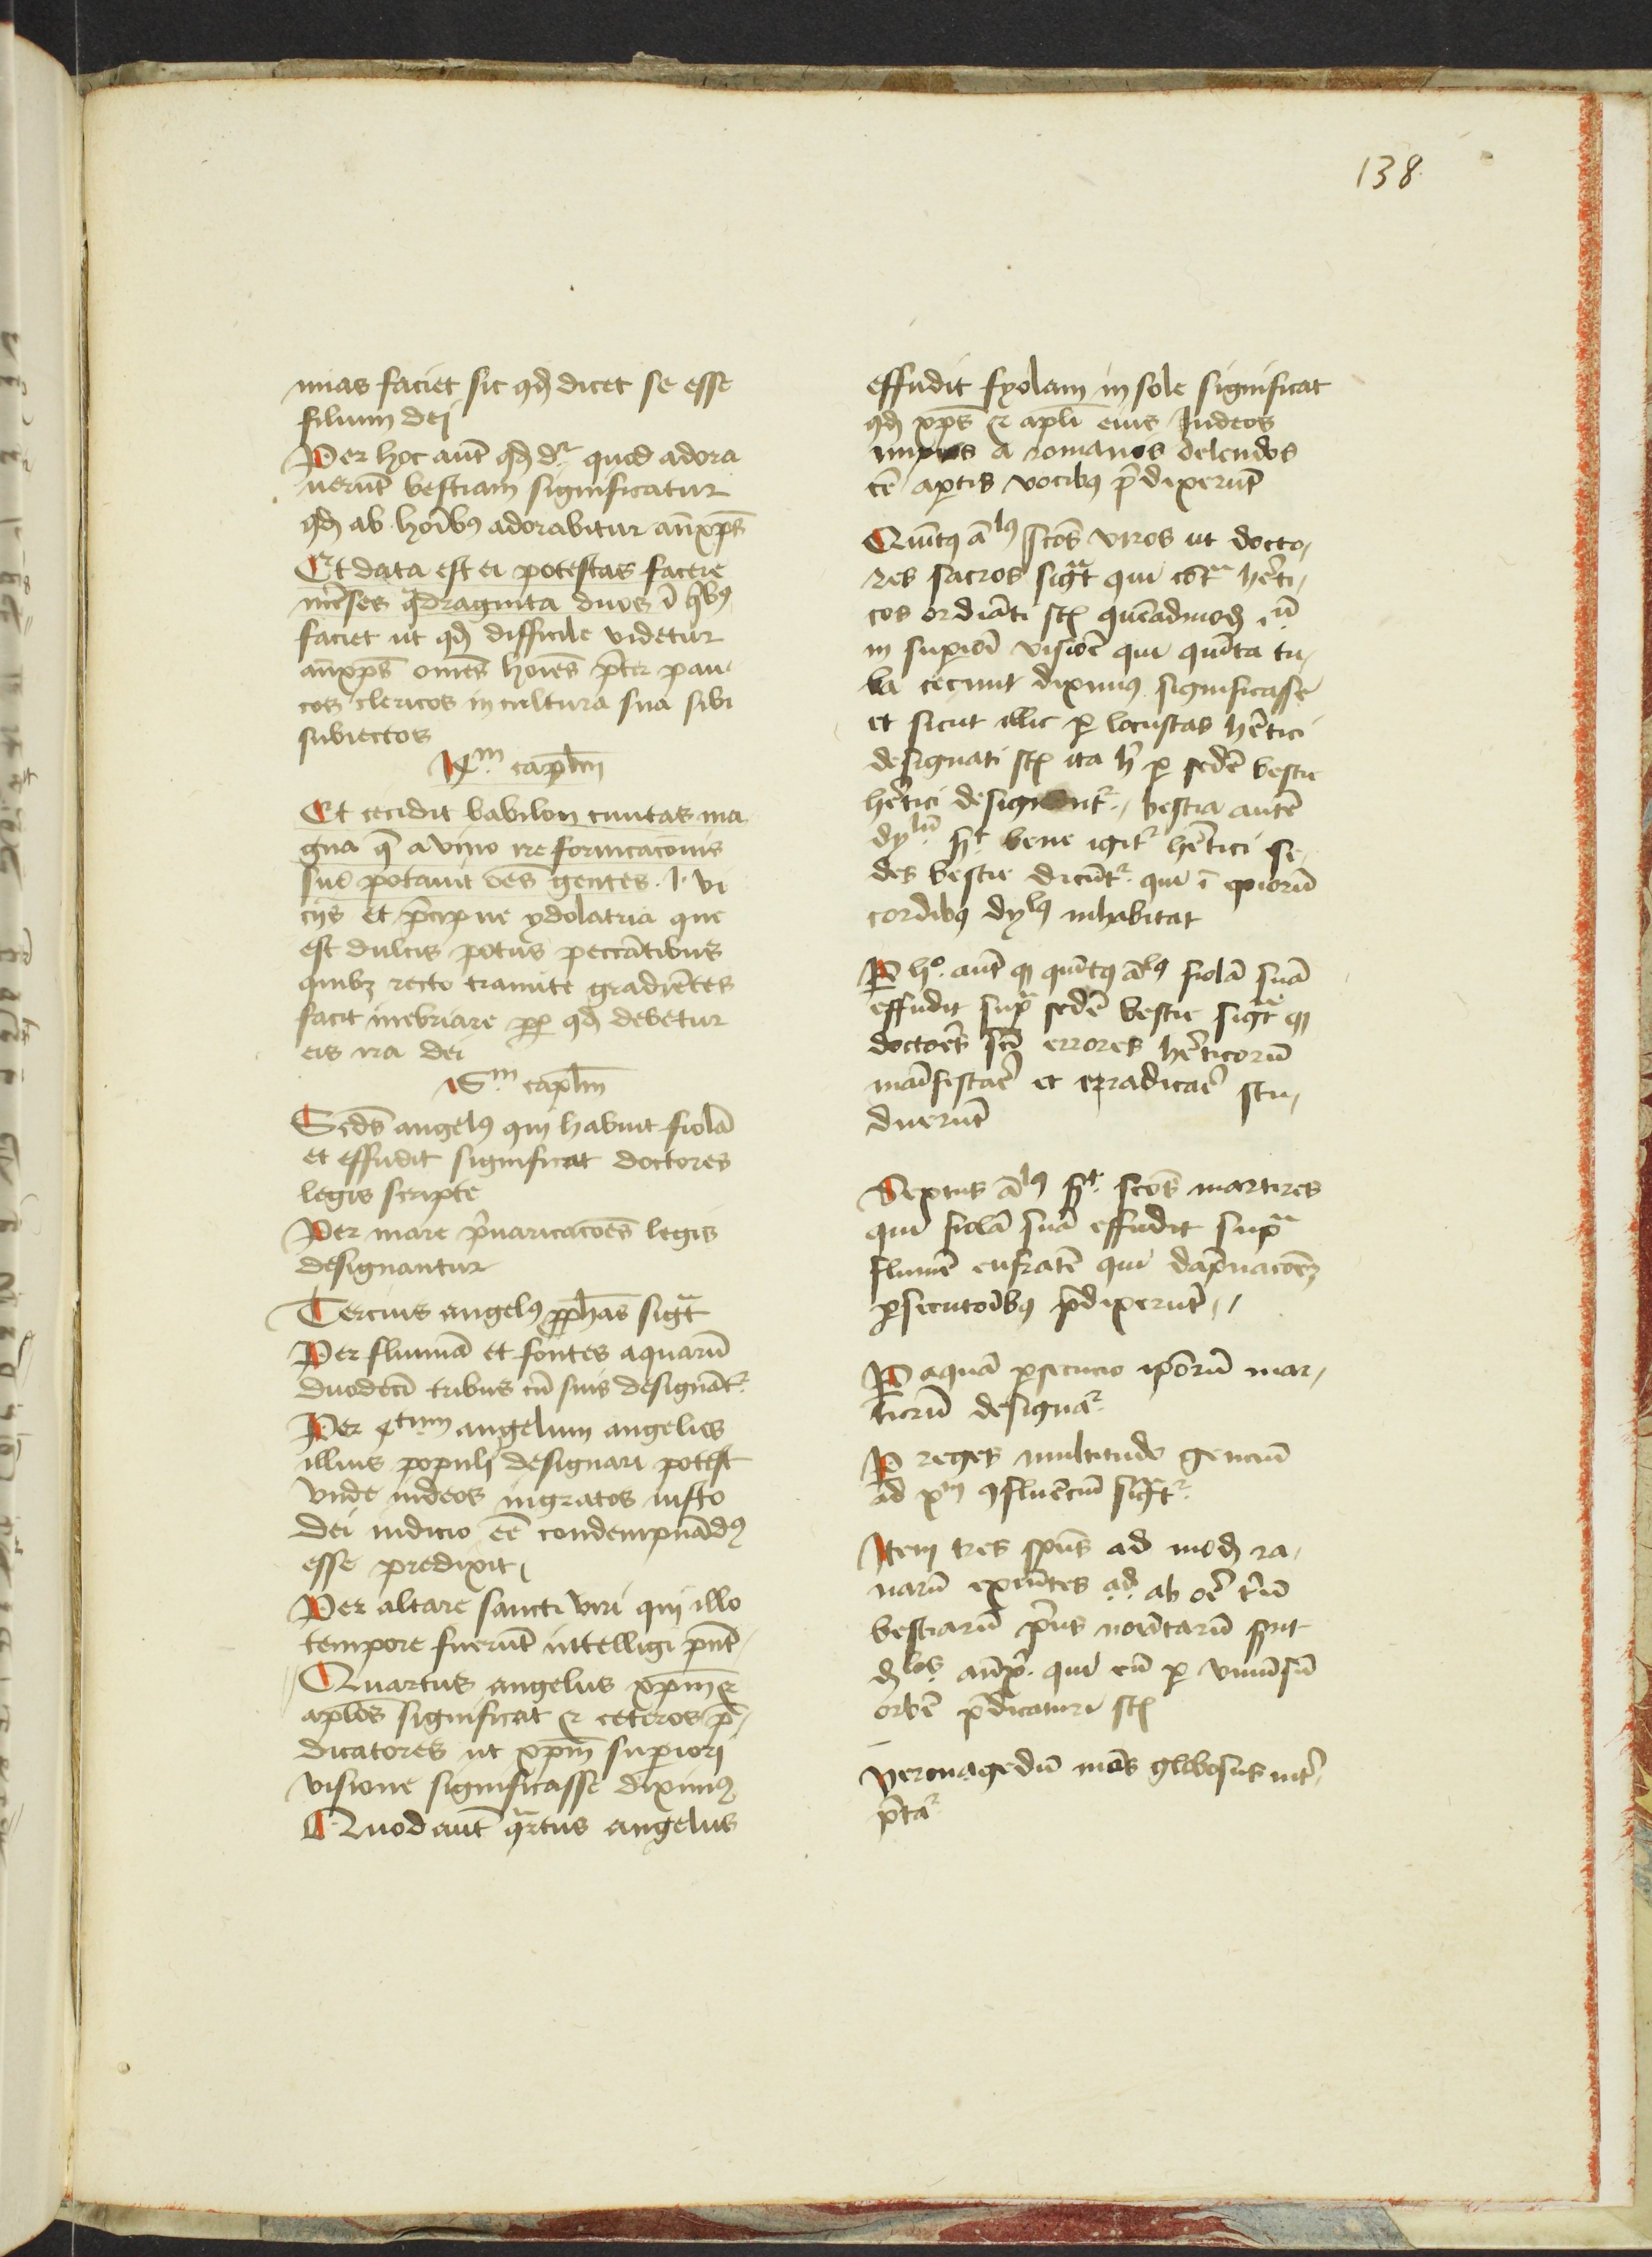 138
mias faciet sic qđ dicet se esse
filium dei
Per hoc aut̄ qđ dr̄ quod adora
uerūt bestiam significatur
qđ ab hoībꝰ adorabitur antixp̄s
Et data est ei potestas facere
mēses qᵃdraginta duos ī qͥbꝰ
faciet ut qđ difficile videtur
antixp̄s omēs hoīes p̄ter pau
cos clericos in cultura sua sibi
subiectos
14ᵐ capl̄m
Et cecidit babilon ciuitas ma
gna q̄ a vino ire fornicacōnis
sue potauit oēs gentes .i. vi
cijs et p̄cipue ydolatria que
est dulcis potus peccātibus
quibꝫ recto tramite gradiētes
facit inebriare ꝓp̄ qđ debetur
eis ira dei
15ᵐ capl̄m
Scds̄ angelꝰ qui habuit fiolā
et effudit significat doctores
legis scripte
Per mare p̄uaricacōes legis
designantur
Tercius angelꝰ ꝓphās sigᵃt
Per flumīa et fontes aquarū
duodecī tribus cū suis designāt᷑
Per 4tum angelum angelus
illius populi designari potest
Vnde iudeos ingratos iusto
dei iudicio eē condempnādꝰ
esse predixit
Per altare sancti viri qui illo
tempore fuerūt intelligi pn̄t
Quartus angelus xp̄m ⁊
apl̄os significat ⁊ ceteros p̄
dicatores ut xp̄m superiori
visione significasse diximꝰ
Quod aut̄ qᵃrtus angelus
effudit fyolam in sole significat
qđ xp̄s ⁊ apl̄i eius Iudeos
impios a romanos delendos
eē aptis vocibꝰ p̄dixerūt
Quītꝰ āˡꝰ scōs viros ut docto,
res sacros sigᵃt qui cōtᵃ hēti,
cos ordiāti st̄ quēadmodū
in supioī visiōe qui quīta tu,
ba cecinit diximꝰ significasse
et sicut illic ꝑ locustas hētici
designati st̄ ita hͥ ꝑ sedē bestie
hētici designant᷑, bestia autē
dyˡū sᵗ bene igit᷑ hētici se,
des bestie dicūt᷑ qui ī ipiorū
cordibꝰ dyˡꝰ inhabitat
Ꝑ hº aut̄ qꝫ quītꝰ āˡꝰ fiolā suā
effudit supᵃ sedē bestie sigᵃt qꝫ
doctoēs scī errores hēticorū
māifestaē et erradicaē stu,
duerūt
Sextus āˡꝰ sᵗ scōs martires
qui fiolā suā effudit supᵃ
flumē eufratē qui dāpnacōeꝫ
ꝑsecutoībꝰ p̄dixerūt,,
Ꝑ aquā ꝑsecucio ip̄orū mar,
tirū designat᷑
Ꝑ reges multitudo genciū
ad xᵐ ꝯfluēciū sigᵃt᷑
Item tres sp̄us ad modū ra,
narū exeūtes ad ab oē triū
bestiarū p̄us noīatarū snt
dˡos antixᵖ qui eū ꝑ vniūsū
orbē p̄dicaturi st̄
Hermagedū mōs globosus intͥ,
p̄tat᷑